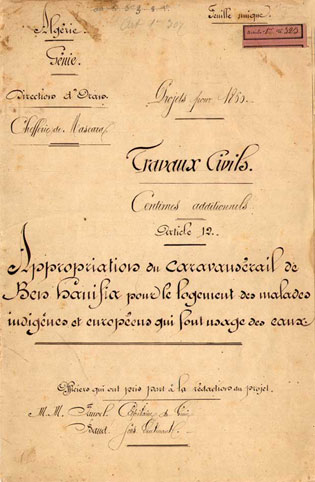 Feuille unique.
Algérie.
Génie.
Direction d'Oran
Projets pour 185
Chefferie de Mascara
Travaux Civils.
Centimes additionnels.
Article 12.
Appropriation du caravansérail de
Ben hanifia pour le logement des malades
indigènes et européens qui font usage des eaux.
Officiers qui ont pris part à la rédaction du projet.
M.M. Faurel Capitaine du Génie
Sous Lieutenant